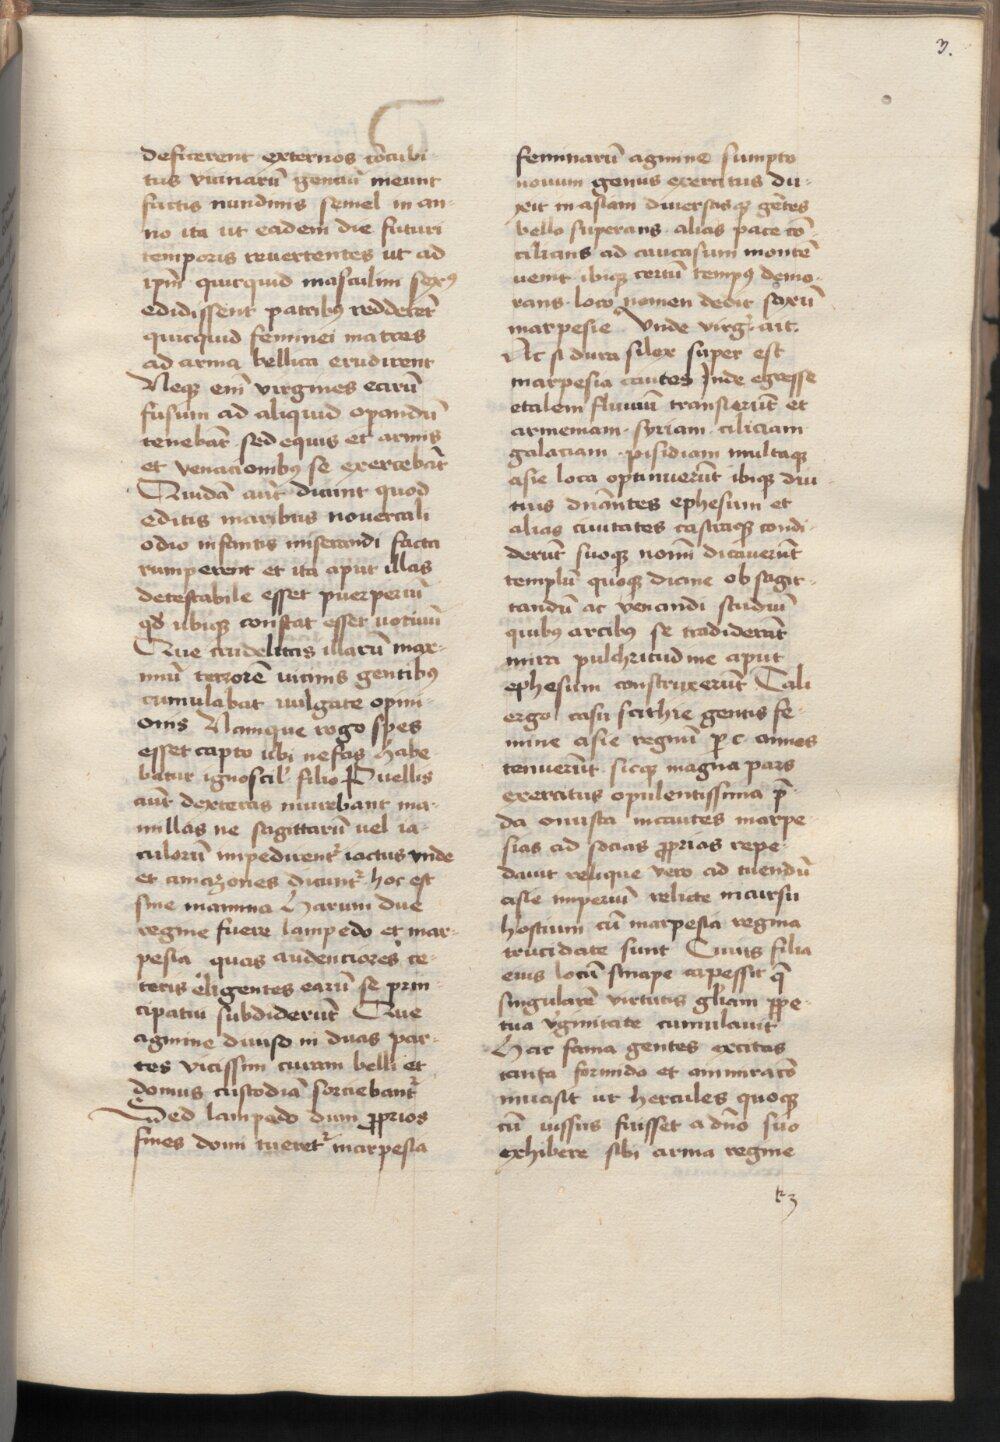 3.
deficerent externos cōcubi
tus vicinarū genciū ineunt
factis nundinis semel in an-
no ita ut eadem die futuri
temporis reuertentes ut ad
ipm̄ quicquid masculini sexꝰ
edidissent patribꝰ redderēt
quicquid feminei matres
ad arma bellica erudirent
Neqꝫ em̄ virgines earū
fusum ad aliquid opandū
tenebāt sed equis et armis
et venacionibꝰ se exercebāt
Quidā aūt dicunt quod
editis maribus nouercali
odio infantis miserandi facta
rumperent et ita aput illas
detestabile esset puerperiū
qd̄ ubiqꝫ constat esset uotiuū
Que crudelitas illarū max-
imū terrorē vicinis gentibꝰ
cumulabat uulgate opini
onis Namque rogo spes
esset capto ubi nefas habe
batur ignoscil' filio Puellis
aūt dexteras inurebant ma-
millas ne sagittarū uel ia-
culorū impedirent' iactus vnde
et amazones dicunt' hoc est
sine mamma Harum due
regine fuere lampedo et mar-
pesia quas audenciores ce-
teris eligentes earū se prin
cipatiu subdiderūt Que
agmine diuiso in duas par-
tes vicissim curam belli et
domus custodiā sorciebant'
Sed lampedo dum ꝓprios
fines domi tueret' marpesia
feminarū agmine sumpto
nouum genus exercitus du-
xit in asiam diuersasqꝫ gētes
bello superans alias pace cō-
cilians ad caucasum montē
uenit ibiqꝫ certū tempꝰ demo-
rans loco nomen dedit saxū
marpesie Vnde virg' ait.
Ac si dura silex super est
marpesia cautes Inde egresse
etalem fluuiū transierūt et
armeniam syriam ciliciam
galaciam pisidiam multaqꝫ
asie loca optinuerūt ibiqꝫ diu
tius dn̄antes ephesum et
alias ciuitates castraqꝫ condi-
derūt suoqꝫ nom̄i dicauerūt
templū quoqꝫ dicine ob sagit-
tandū ac venandi studiū
quibꝰ arcibꝰ se tradiderāt
mira pulchritudine aput
ephesum construxerūt Tali
ergo casu scithie gentis fe-
mine asie regnū p c annos
tenuerūt sicqꝫ magna pars
exercitus opulentissima p̄-
da onusta incautes marpe
sias ad socias ꝓprias repe-
dauit relique vero ad tuendū
asie imperiū relicte incursu
hostium cū marpesia regina
trucidate sunt Cuius filia
eius locū sinape capessit q̄
singularē virtutis gl̄iam ppe
tua v'ginitate cumulauit
Hac fama gentes excitas
tanta formido et ammiracō
inuasit ut hercules quoqꝫ
cū iussus fuisset a dn̄o suo
exhibere sibi arma regine
k3